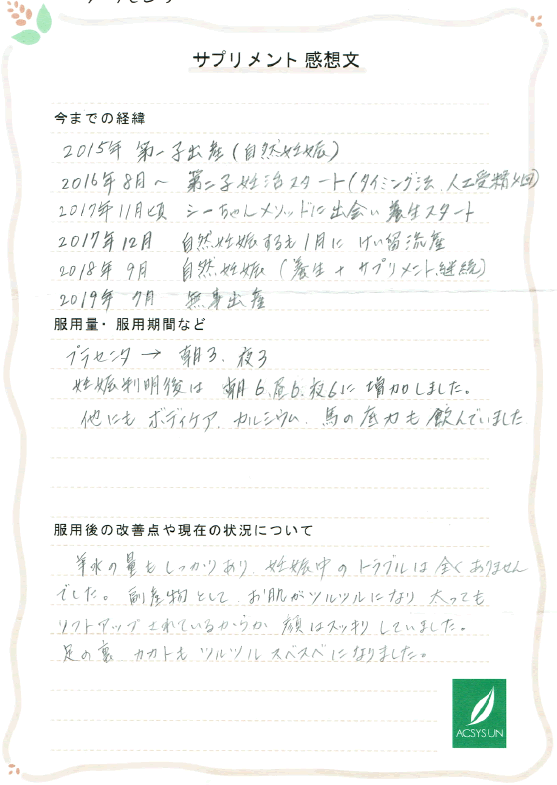 サプリメント 感想文
今までの経緯
2015年 第一子出産(自然妊娠)
2016年8月〜 第二子妊活スタート(タイミング法、人工受精4回)
2017年11月頃 シーちゃんメソッドに出会い養生スタート
2017年12月 自然妊娠するも1月に けい留流産
2018年 9月 自然妊娠 (養生 + サプリメント継続)
2019年 7月 無事出産
服用量・服用期間など
プラセンタ → 朝3、夜3
妊娠判明後は 朝6、昼6、夜6に 増加しました。
他にも ボディケア、カルシウム、馬の底力も 飲んでいました
服用後の改善点や現在の状況について
羊水の量もしっかりあり 妊娠中のトラブルは全くありません
でした。副産物として、お肌がツルツルになり 太っても
リフトアップされているからか 顔はスッキリしていました。
足の裏 カカトも ツルツル スベスベになりました。
ACSYSUN